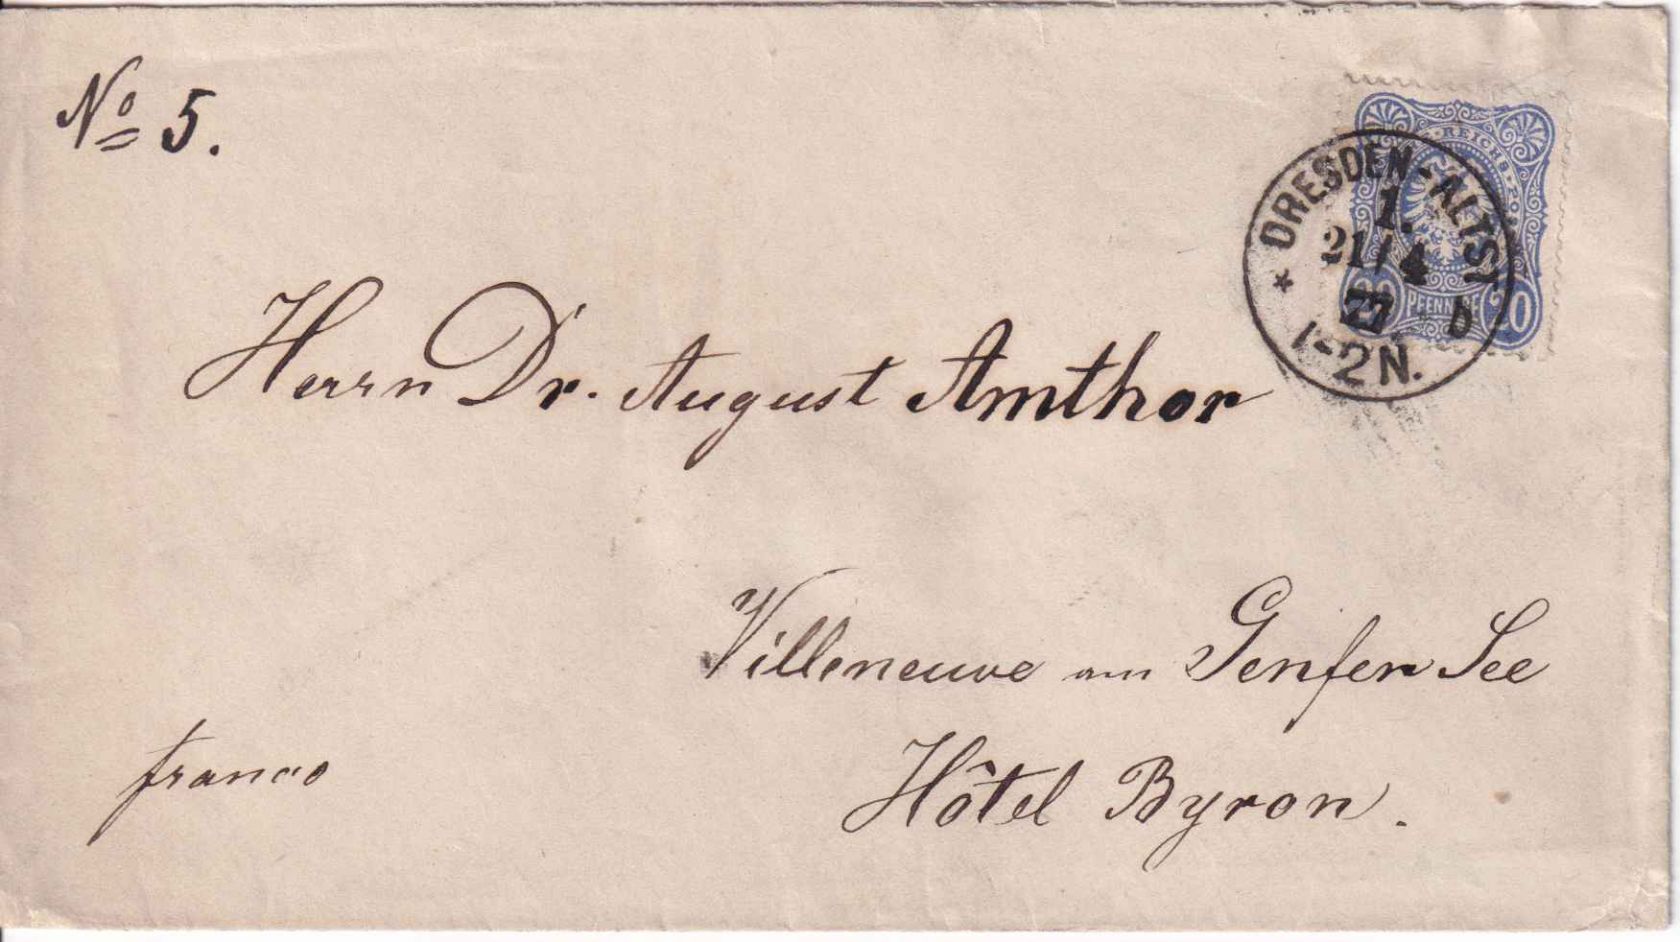 No 5.
REICHS-PO
DRESDEN-ALTST
1.
21/4
77 b
1-2N.
20 PFENNIGE 20
Herrn Dr. August Amthor
Villeneuve am Genfer See
Hôtel Byron.
franco